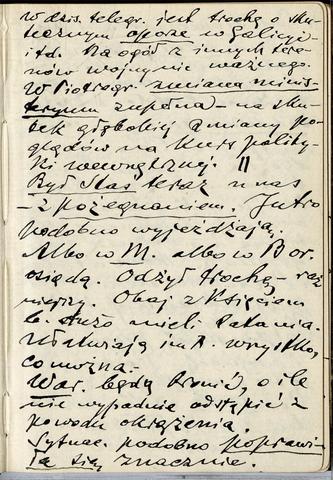 W dzis. telegr. jest trochę o sku-
tecznym oporze w Galicyi
itd. Na ogół z innych tere-
nów wojny nic ważnego.
W Piotrogr. zmiana minis-
teryum zupełna – na sku-
tek głębokiej zmiany po-
glądów na kurs polity-
ki wewnętrznej. ||
Był Staś teraz u nas
– z pożegnaniem. Jutro
podobno wyjeżdżają.
Albo w M. albo w Bor.
osiędą. Odżył trochę, raź
niejszy. Obaj z Księciem
b. dużo mieli latania.
Ułatwiają im R. wszystko,
co można.
War. będą bronić, o ile
nie wypadnie odstąpić z
powodu okrążenia.
Sytuac. podobno poprawi-
ła się znacznie.